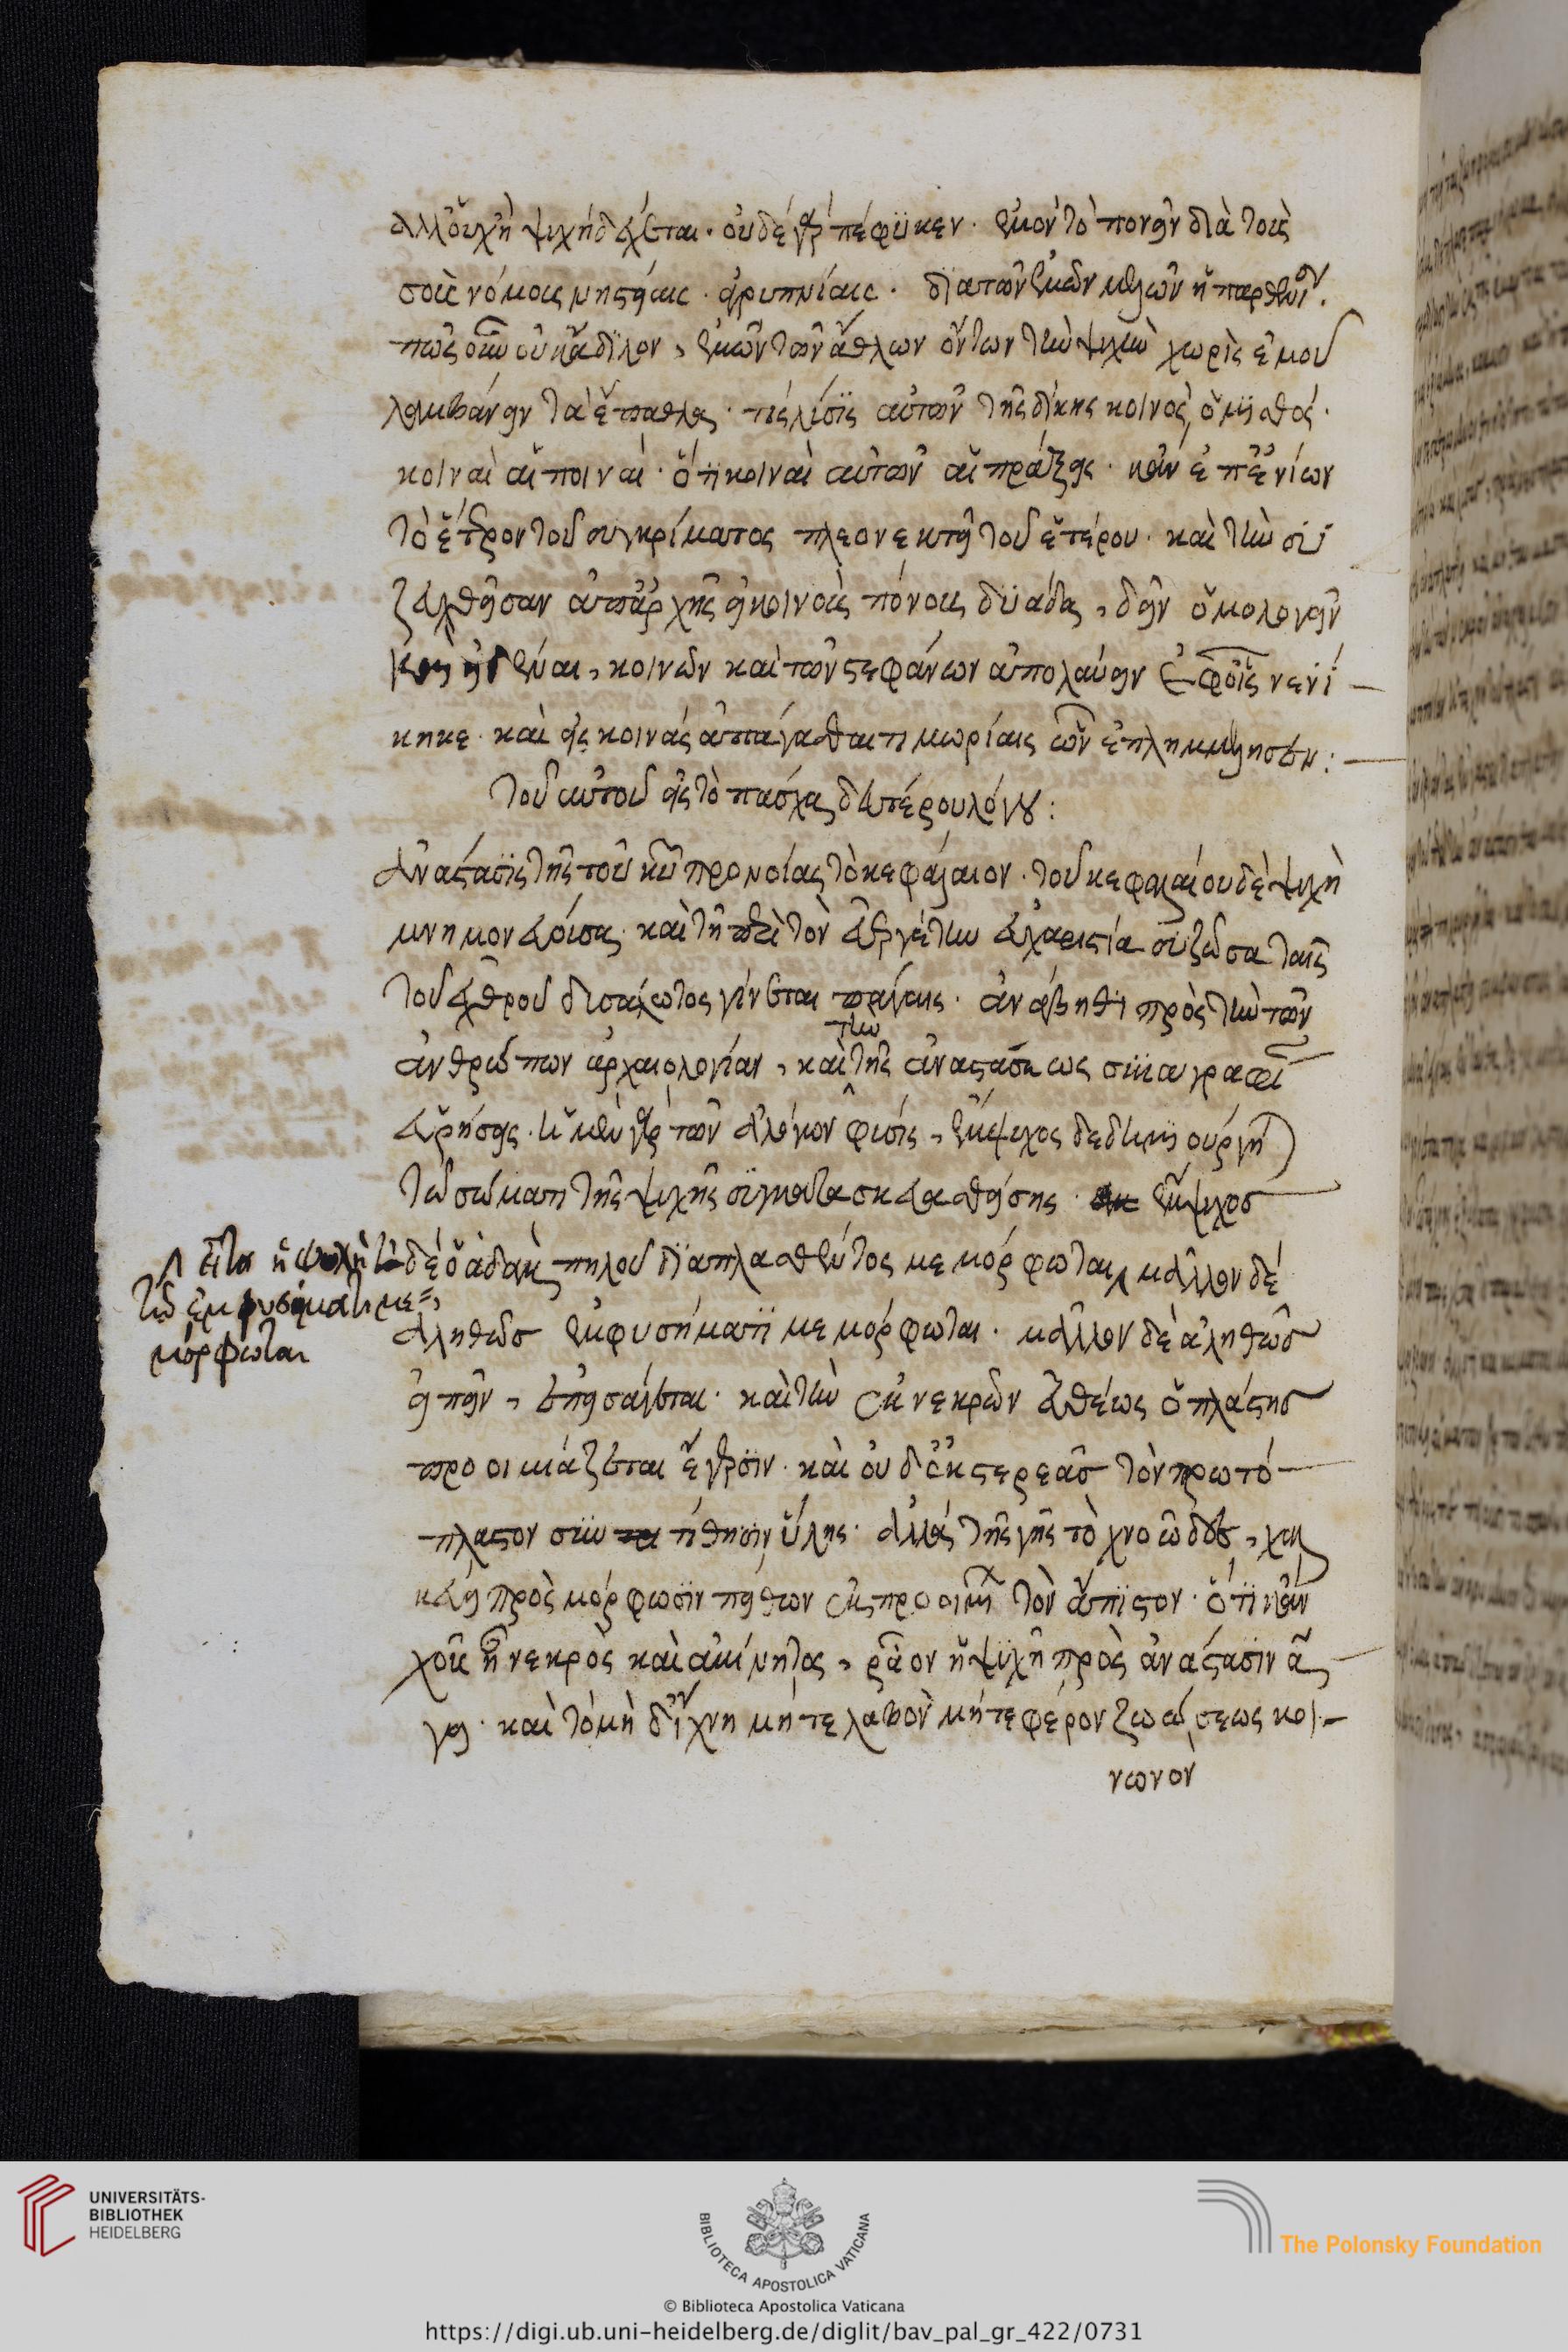 ἀλλ' οὐχ ἡ ψυχὴ δέχεται· οὐδὲ γὰρ πέφυκεν· ἐμὸν τὸ πονεῖν διὰ τοῖς
σοῖς νόμοις νηστείαις· ἀγρυπνίαις· διὰ τῶν ἐμῶν μελῶν ἡ παρθενία.
πῶς οὖν οὐκ ἄδικον, ἐμῶν τῶν ἄθλων ὄντων τὴν ψυχὴν χωρὶς ἐμοῦ
λαμβάνειν τὰ ἔπαθλα· τίς λύσις αὐτῶν τῆς δίκης κοινὸς ὁ μισθός·
κοιναὶ αἱ ποιναί· ὅτι κοιναὶ αὐτῶν αἱ πράξεις· κἂν ἐπ' ἐνίων
τὸ ἕτερον τοῦ συγκρίματος πλεονεκτῇ τοῦ ἑτέρου· καὶ τὴν συ
ζευχθεῖσαν ἀπ' ἀρχῆς ἐν κοινοῖς πόνοις δυάδα, δεῖν ὁμολογεῖν
κοινῶν καὶ τῶν στεφάνων ἀπολαύειν ἐφ' οἷς νενί
κηκε· καὶ εἰς κοινὰς ἀπάγεσθαι τιμωρίαις ὧν ἐπλημμέλησεν:
Τοῦ αὐτοῦ εἰς τὸ πάσχα δευτέρου λόγου:
Ἀνάστασις τῆς τοῦ κυ προνοίας τὸ κεφάλαιον· τοῦ κεφαλαίου δὲ ψυχὴ
μνημονεύουσα· καὶ τῇ περὶ τὸν εὐεργέτην εὐχαριστία συζῶσα ταῖς
τοῦ ἐχθροῦ δυσάλωτος γίνεται πάγαις· ἀνάβηθι πρὸς τὴν τῶν
ἀνθρώπων ἀρχαιολογίαν, καὶ τὴν τῆς ἀναστάσεως σκιαγραφί
εὑρήσεις· ἡ μὲν γὰρ τῶν ἀλόγων φύσις, ἔμψυχος δεδημιούργη
τῷ σώματι τῆς ψυχῆς συγκατασκευασθείσης· ἔμψυχος
δὲ ὁ ἀδὰμ πηλοῦ διαπλασθέντος μεμόρφωται μᾶλλον δὲ
ἀληθῶς ἐμφυσήματι μεμόρφωται· μᾶλλον δὲ ἀληθῶς
εἰπεῖν, ἐπεισάγεται· καὶ τὴν ἐκ νεκρῶν εὐθέως ὁ πλάστης
προοιμιάζεται ἔγερσιν· καὶ οὐδ' ἐκ στερεᾶς τὸν πρωτό
πλαστον συντίθησιν ὕλης· ἀλλὰ τῆς γῆς τὸ χνοῶδες, χαλ
κεύει πρὸς μόρφωσιν πείθων ἐκ προοιμί τὸν ἄπιστον· ὅτι κἂν
χοῦς ἢ νεκρὸς καὶ ἀκίνητος, ῥᾷον ἡ ψυχὴ πρὸς ἀνάστασιν ἄ
γει· καὶ τὸ μὴ δι' ἴχνη μήτε λαβὸν μήτε φέρον ζωώσεως κοι
νωνὸν
εἶτα ἡ ψυχὴ
τῷ ἐμφυσήματι με
μόρφωται
UNIVERSITÄTS-
BIBLIOTHEK
HEIDELBERG
BIBLIOTECA APOSTOLICA VATICANA
The Polonsky Foundation
© Biblioteca Apostolica Vaticana
https://digi.ub.uni-heidelberg.de/diglit/bav_pal_gr_422/0731